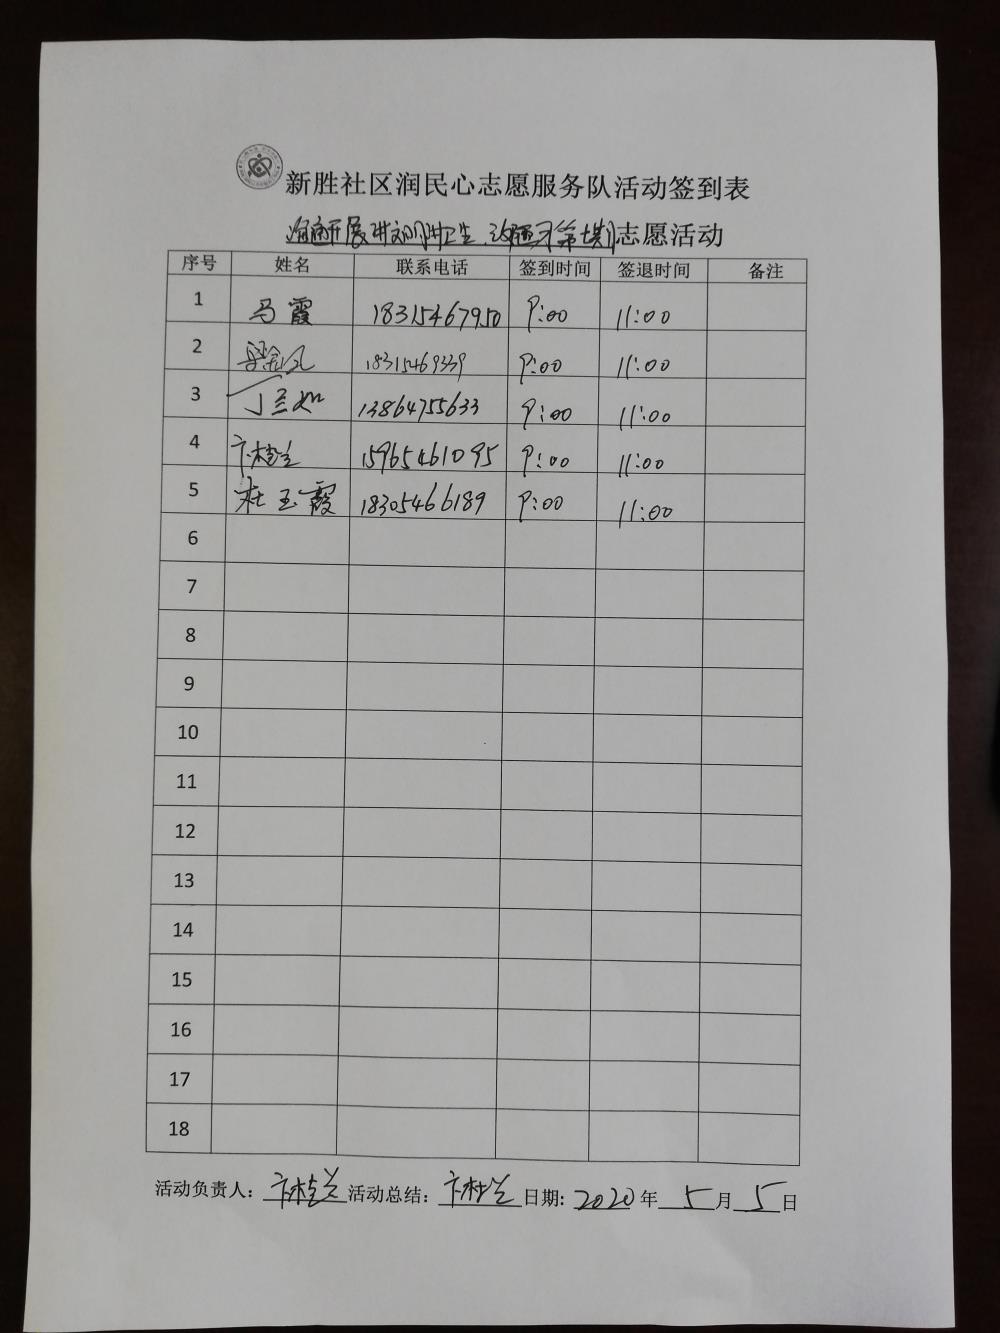 新胜社区润民心志愿服务队活动签到表
开展讲文明讲卫生 志愿活动
序号 姓名 联系电话 签到时间 签退时间 备注
1 马霞 18315467950 9:00 11:00
2 18315469339 9:00 11:00
3 丁兰如 13864755633 9:00 11:00
4 卞桂兰 15965461095 9:00 11:00
5 杜玉霞 18305466189 9:00 11:00
6
7
8
9
10
11
12
13
14
15
16
17
18
活动负责人: 卞桂兰 活动总结: 卞桂兰 日期: 2020 年 5 月 5 日